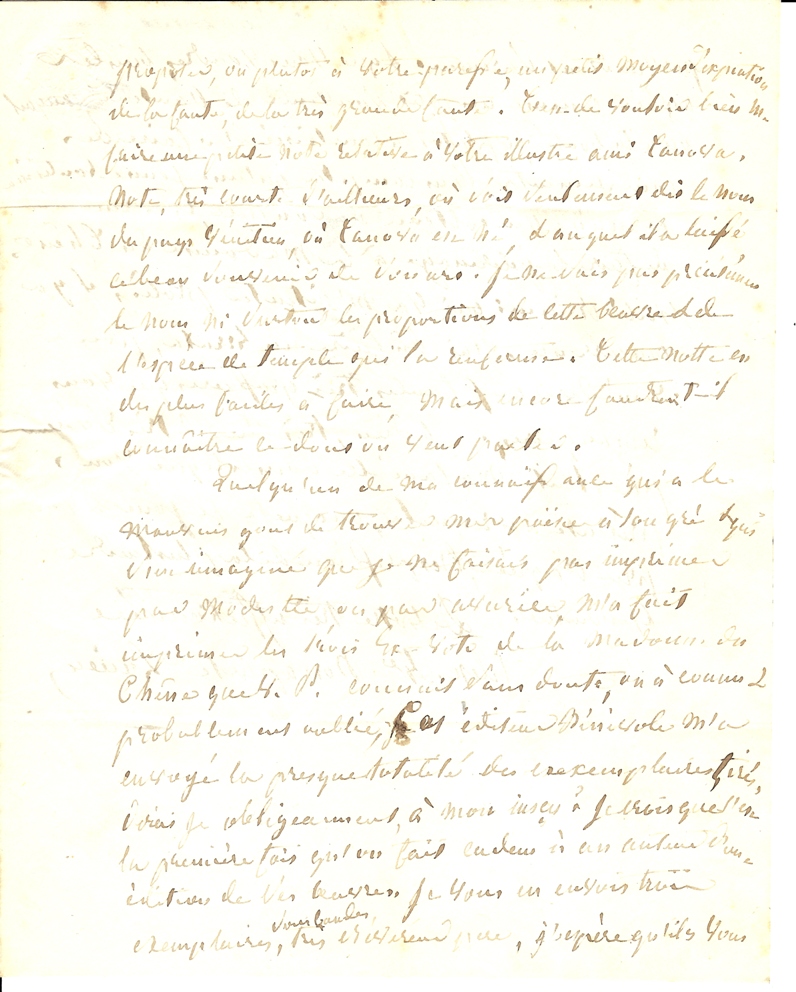 proposer, ou plutôt à votre paresse, un petit moyen d'expiation
de la faute, de la très grande faute. C'est de vouloir bien me
faire une petite note relative à votre illustre ami Canova.
Note, très courte d'ailleurs, où vous seulement dis le nom
du pays vénitien, où Canova est né, dauquel il a laissé
ce beau souvenir de . Je ne sais pas précisément
le nom ni surtout les proportions de cette oeuvre & de
l'espèce de temple qui la renferme. Cette notte est
des plus faciles à faire, mais encore faudrait-il
connaître ce dont on veut parler.
Quelqu'un de ma connaissance qui a le
mauvais gout de trouver ma poësie à son gré & qui
s'est imaginé que je ne faisais pas imprimer
par modestie ou par avarice m'a fait
imprimer les trois Ex-voto de la madonne du
Chêne que V. P. connait sans doute, ou à connu &
probablement oublié, Cet éditeur Bénévole m'a
envoyé la presque totalité des exemplaires tirés,
dirais je obligeamment, à mon insçu? Je crois que c'est
la première fois qu'on fait cadeau à un auteur d'une
édition de ses oeuvres. Je vous en envois trois
exemplaires, sous bandes, très révérend père, j'espère qu'ils vous